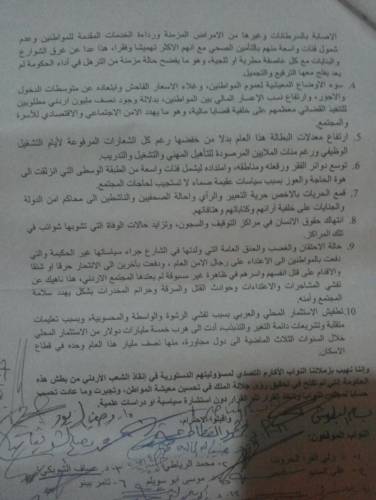 الاصابة بالسرطانات وغيرها من الامراض المزمنة ورداءة الخدمات المقدمة للمواطنين وعدم
شمول فئات واسعة منهم بالتأمين الصحي مع انهم الاكثر تهميشا وفقرا، هذا عدا عن غرق الشوارع
والبنايات مع كل عاصفة مطرية او ثلجية، وهو ما يفضح حالة مزمنة من الترهل في أداء الحكومة لم
يعد يفلح معها الترقيع والتجميل.
4. سوء الاوضاع المعيشية لعموم المواطنين، وغلاء الاسعار الفاحش وابتعاده عن متوسطات الدخول
والاجور، وارتفاع نسب الاعسار المالي بين المواطنين، بدلالة وجود نصف مليون اردني مطلوبين
للتنفيذ القضائي معظمهم على خلفية قضايا مالية، وهو ما يهدد الامن الاجتماعي والاقتصادي للأسرة
والمجتمع.
5. ارتفاع معدلات البطالة هذا العام بدلا من خفضها رغم كل الشعارات المرفوعة لأيام التشغيل
الوظيفي ورغم مئات الملايين المرصودة للتأهيل المهني والتشغيل والتدريب.
6. توسع دوائر الفقر ورقعته ومناطقه، وامتداده ليشمل فئات واسعة من الطبقة الوسطى التي انزلقت الى
هوة الحاجة والعوز بسبب سياسات عقيمة صماء لا تستجيب لحاجات المجتمع.
7. قمع الحريات بالاخص حرية التعبير والرأي واحالة الصحفيين والناشطين الى محاكم امن الدولة
والجنايات على خلفية آرائهم وكتاباتهم وهتافاتهم.
8. انتهاك حقوق الانسان في مراكز التوقيف والسجون، وتزايد حالات الوفاة التي تشوبها شوائب في
تلك المراكز.
9. حالة الاحتقان والغضب والعنق العامة التي ولدتها في الشارع جراء سياساتها غير الحكيمة والتي
دفعت بالمواطنين الى الاعتداء على رجال الامن العام، ودفعت بآخرين الى الانتحار حرقا او شنقا
والاقدام على قتل انفسهم واسرهم في ظاهرة غير مسبوقة لم يعتدها المجتمع الاردني، هذا ناهيك عن
تفشي المشاجرات والاعتداءات وحوادث القتل والسرقة وجرائم المخدرات بشكل يهدد سلامة
المجتمع وأمنه.
10. تطفيش الاستثمار المحلي والعربي بسبب تفشي الرشوة والواسطة والمحسوبية، وبسبب تعليمات
متقلبة وتشريعات دائمة التغير والتذبذب، أدت الى هرب خمسة مليارات دولار من الاستثمار المحلي
خلال السنوات الثلاث الماضية الى دول مجاورة، منها نصف مليار هذا العام وحده في قطاع
الاسكان.
وإننا نهيب بزملائنا النواب الأكارم التصدي لمسؤوليتهم الدستورية في إنقاذ الشعب الأردني من بطش هذه
الحكومة التي لم تفلح في تحقيق رؤى جلالة الملك في تحسين معيشة المواطن، وتجبرت وما عادت تحسب
حسابا لمجلس النواب دون استشارة سياسية أو دراسات علمية.
واقبلوا الاحترام
النواب الموقعون:
محمد الرياطي
موسى ابو سويلم
ثامر بينو